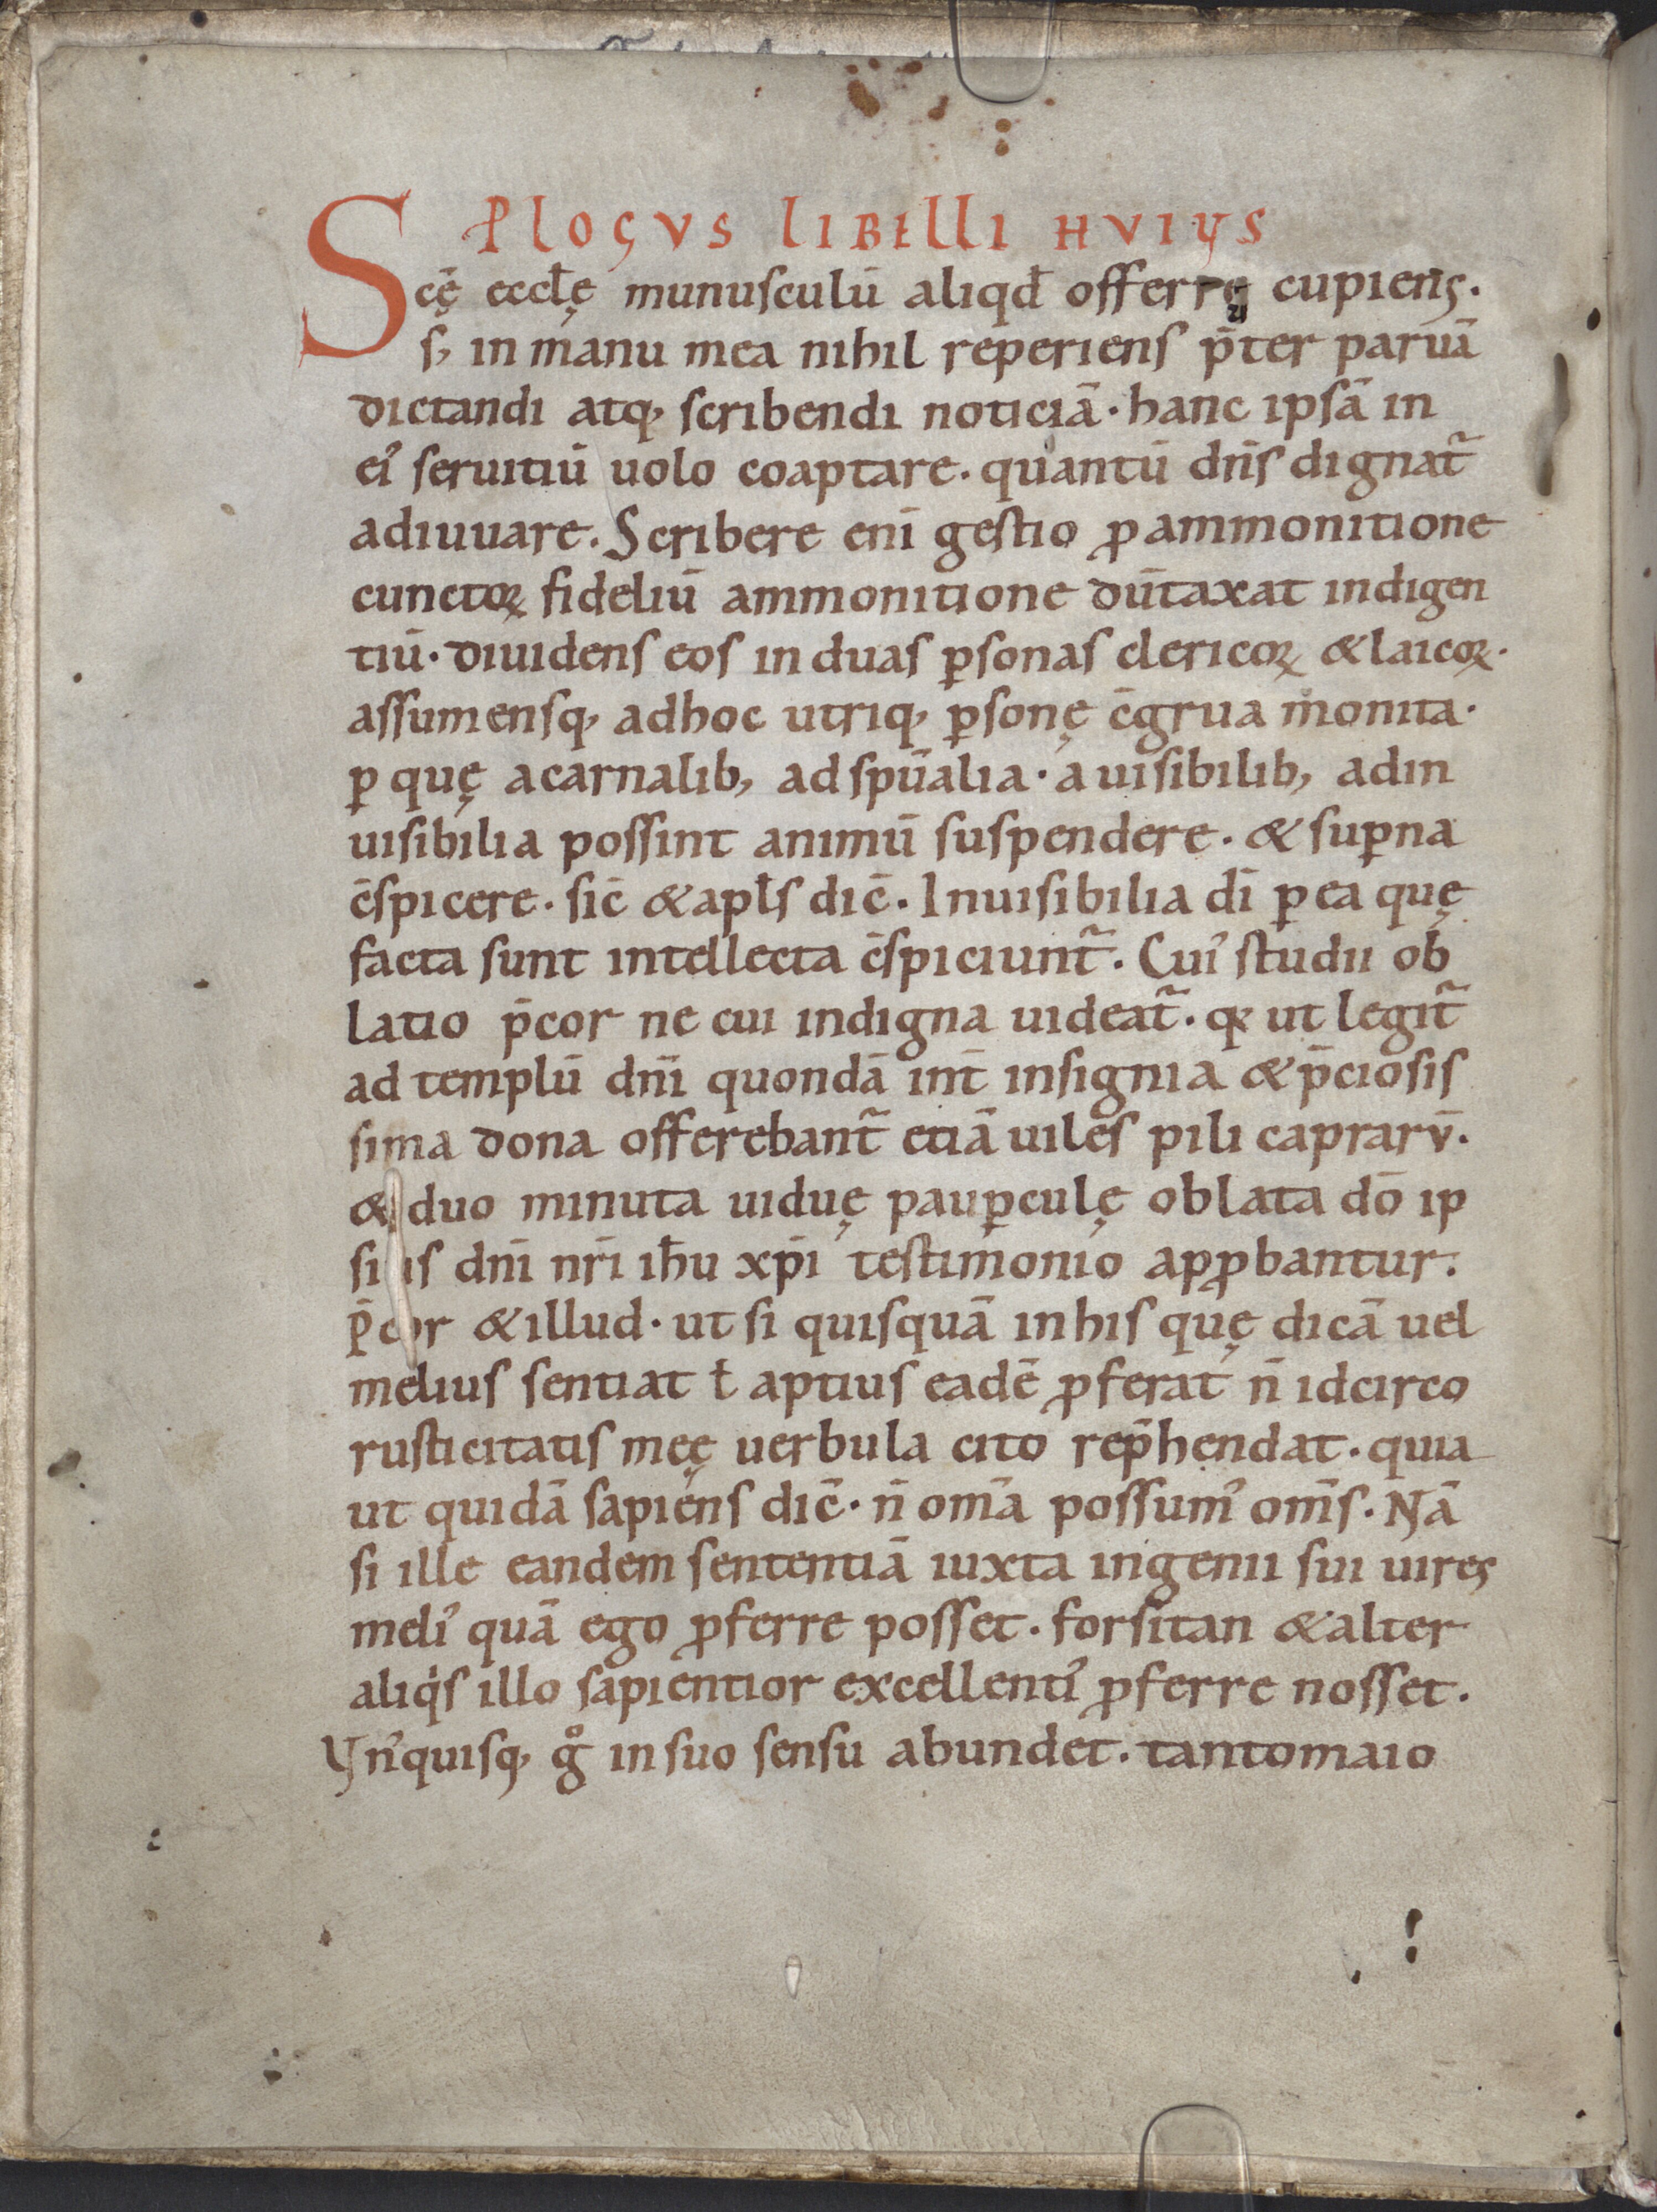 PLOGVS LIBELLI HVIVS
Scę̄ eccłę munusculū aliqđ offerre cupiens.
s; in manu mea nihil reperiens p̄ter paruā
dictandi atq; scribendi noticiā · hanc ipsā in
ei᾽ seruitiū uolo coaptare · quantū dn̄s dignat᷑
adiuuare. Scribere eni̅ gestio ꝓ ammonitione
cunctoꝝ fideliū ammonitione dūtaxat indigen
tiū · diuidens eos in duas ꝑsonas clericoꝝ & laicoꝝ ·
assumensq; adhoc utriq; ꝑsonę c̄grua monita ·
ꝑ quę a carnalib; ad spūalia · a uisibilib; ad in
uisibilia possint animū suspendere · & suꝑna
c̄spicere · sic̄ & apłs dic̄ · Inuisibilia di̅ ꝑ ea quę
facta sunt intellecta c̄spiciunt᷑ · Cui᾽ studii ob
latio p̄cor ne cui indigna uideat᷑ · qꝛ ut legit᷑
ad templū dn̄i quondā int̄ insignia & p̄ciosis
sima dona offerebant᷑ etiā uiles pili caprarv̄ ·
& duo minuta uiduę pauꝑculę oblata dō ip
sius dn̄i nr̄i ih̄u xp̄i testimonio apꝓbantur ·
p̄cor & illud · ut si quisquā in his quę dicā uel
melius sentiat ł aptius eadē ꝓferat n̄ idcirco
rusticitatis meę uerbula cito rep̄hendat · quia
ut quidā sapiens dic̄ · n̄ om̄a possum᾽ om̄s · Nā
si ille eandem sententiā iuxta ingenii sui uires
meli᾽ quā ego ꝓferre posset · forsitan & alter
aliqͥs illo sapientior excellenti᾽ ꝓferre nosset ·
Vn᾽quisq; gͦ in suo sensu abundet · tantomaio